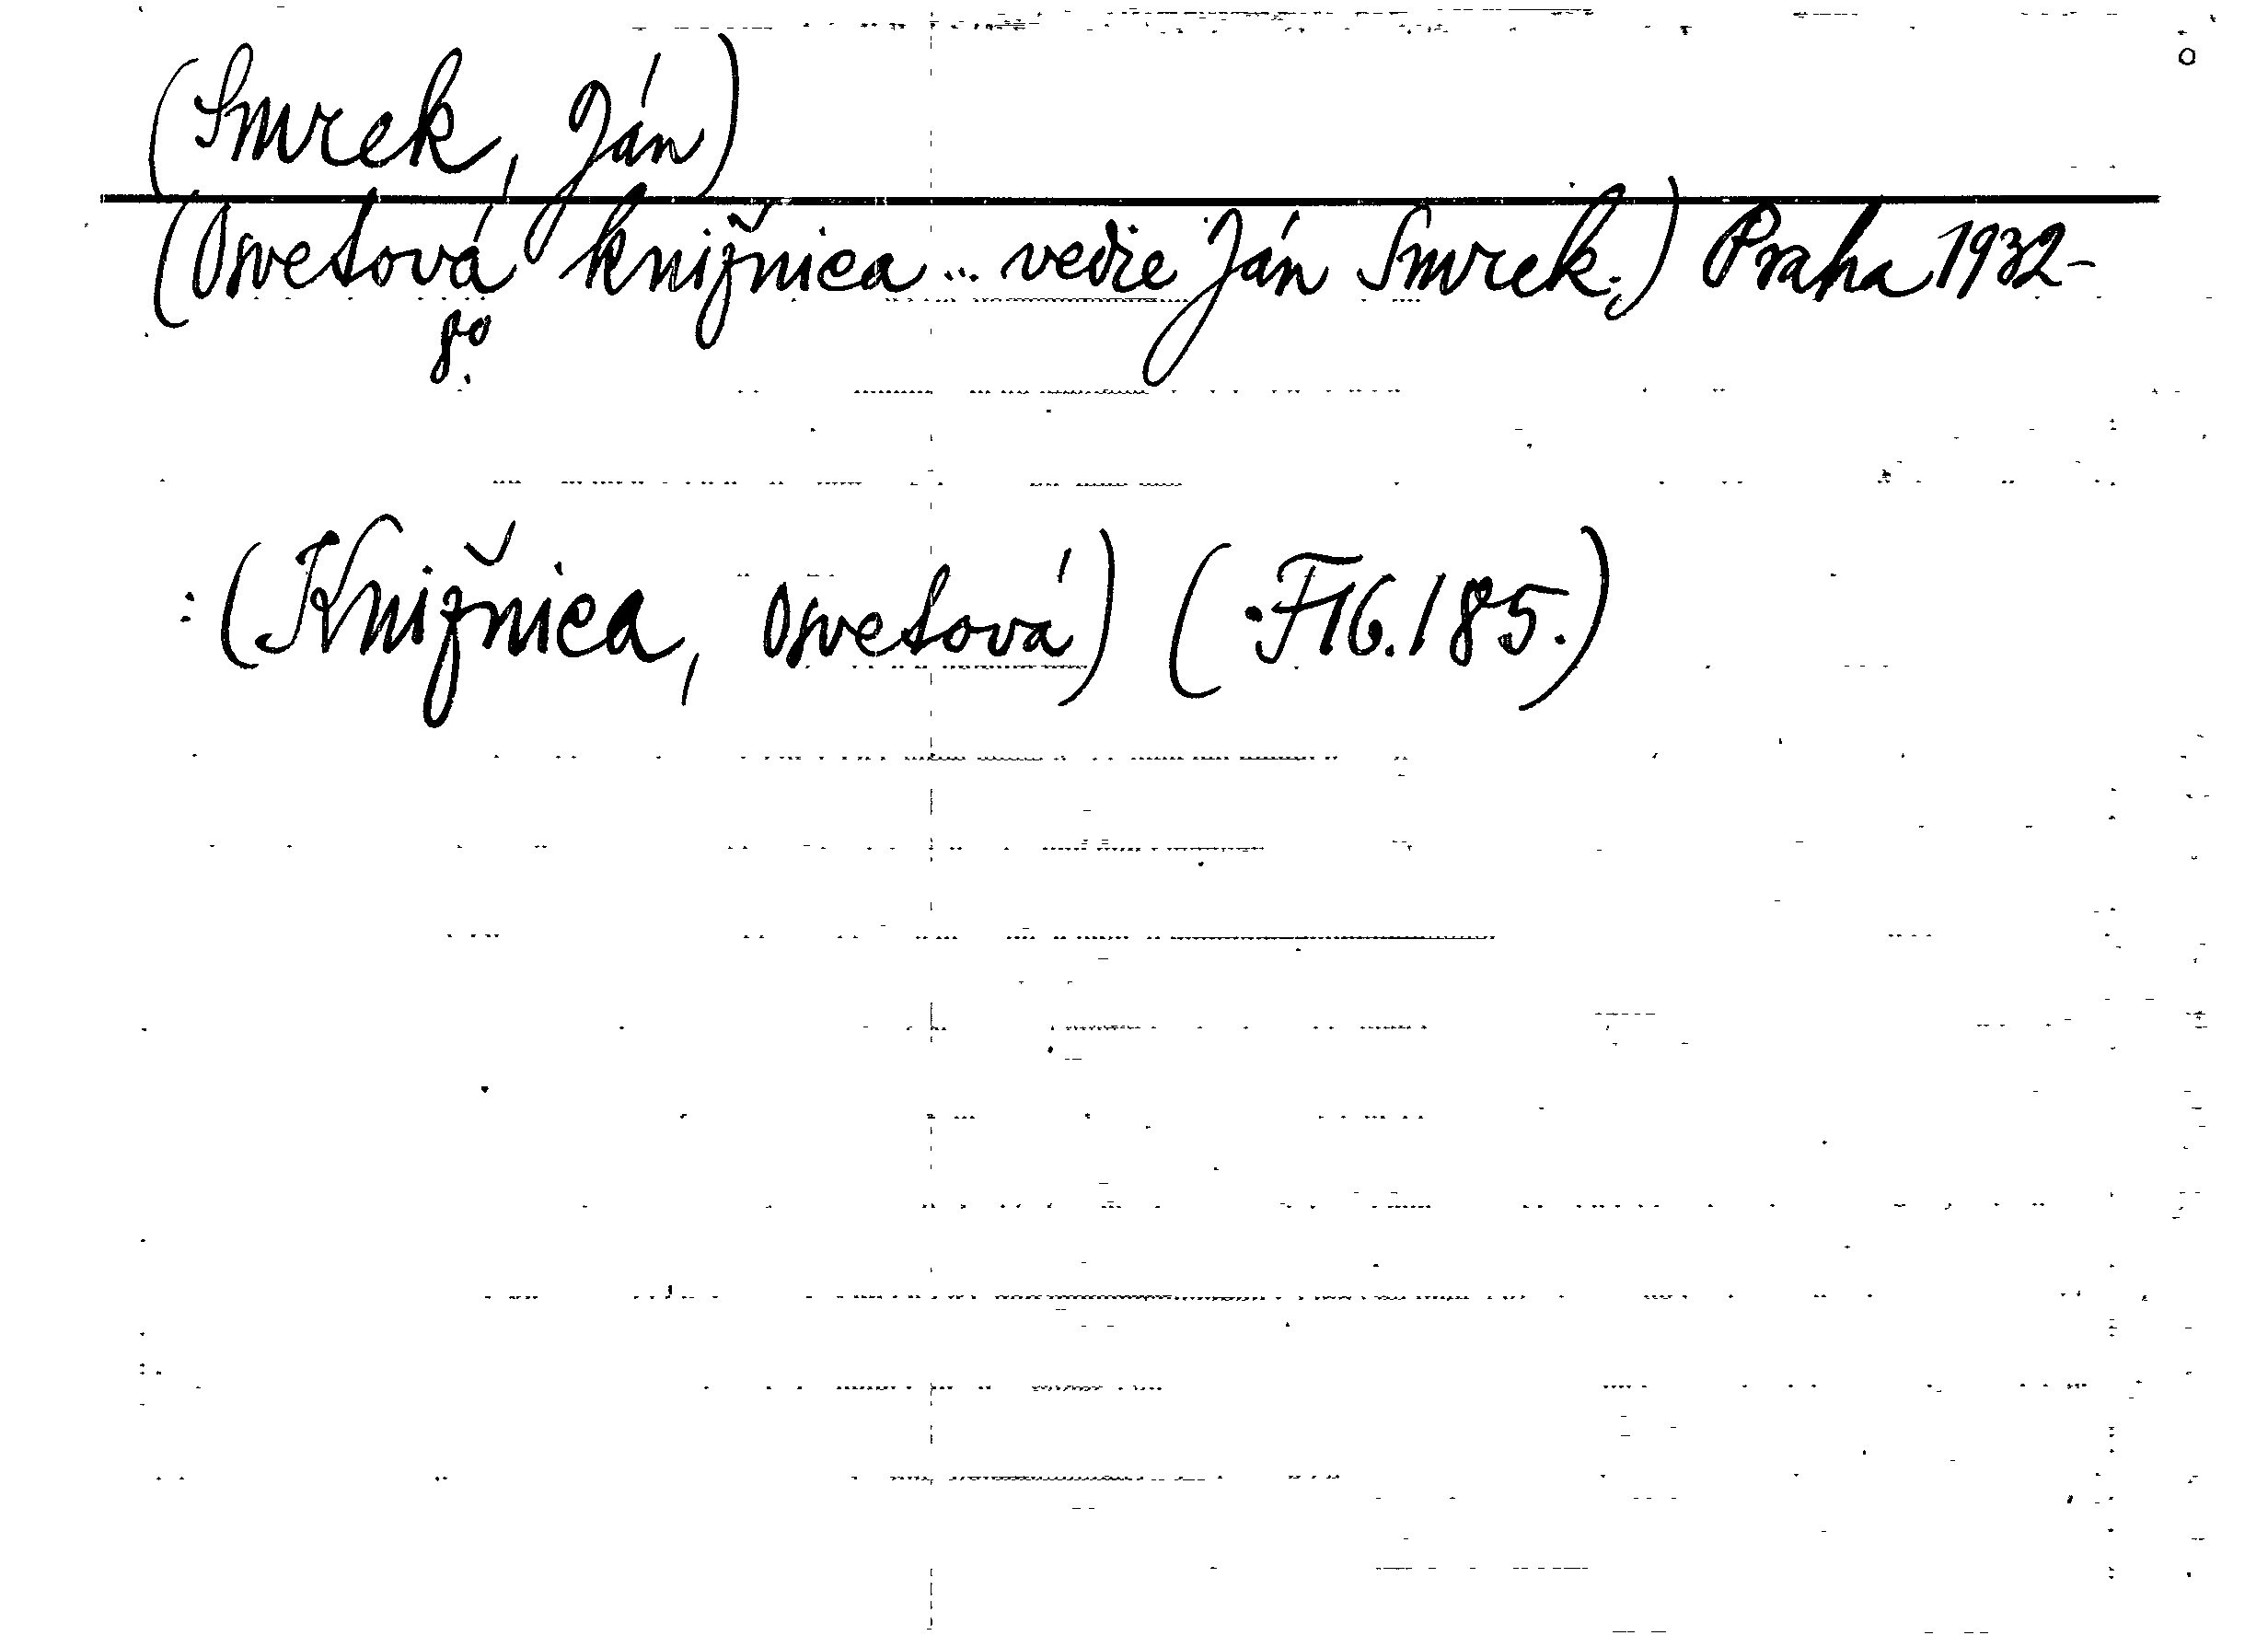 (Smrek, Ján)
(Osvetová knižnica ... vedie Ján Smrek.) Praha 1932-
8º.
: (Knižnica, osvetová) (F16.185.)